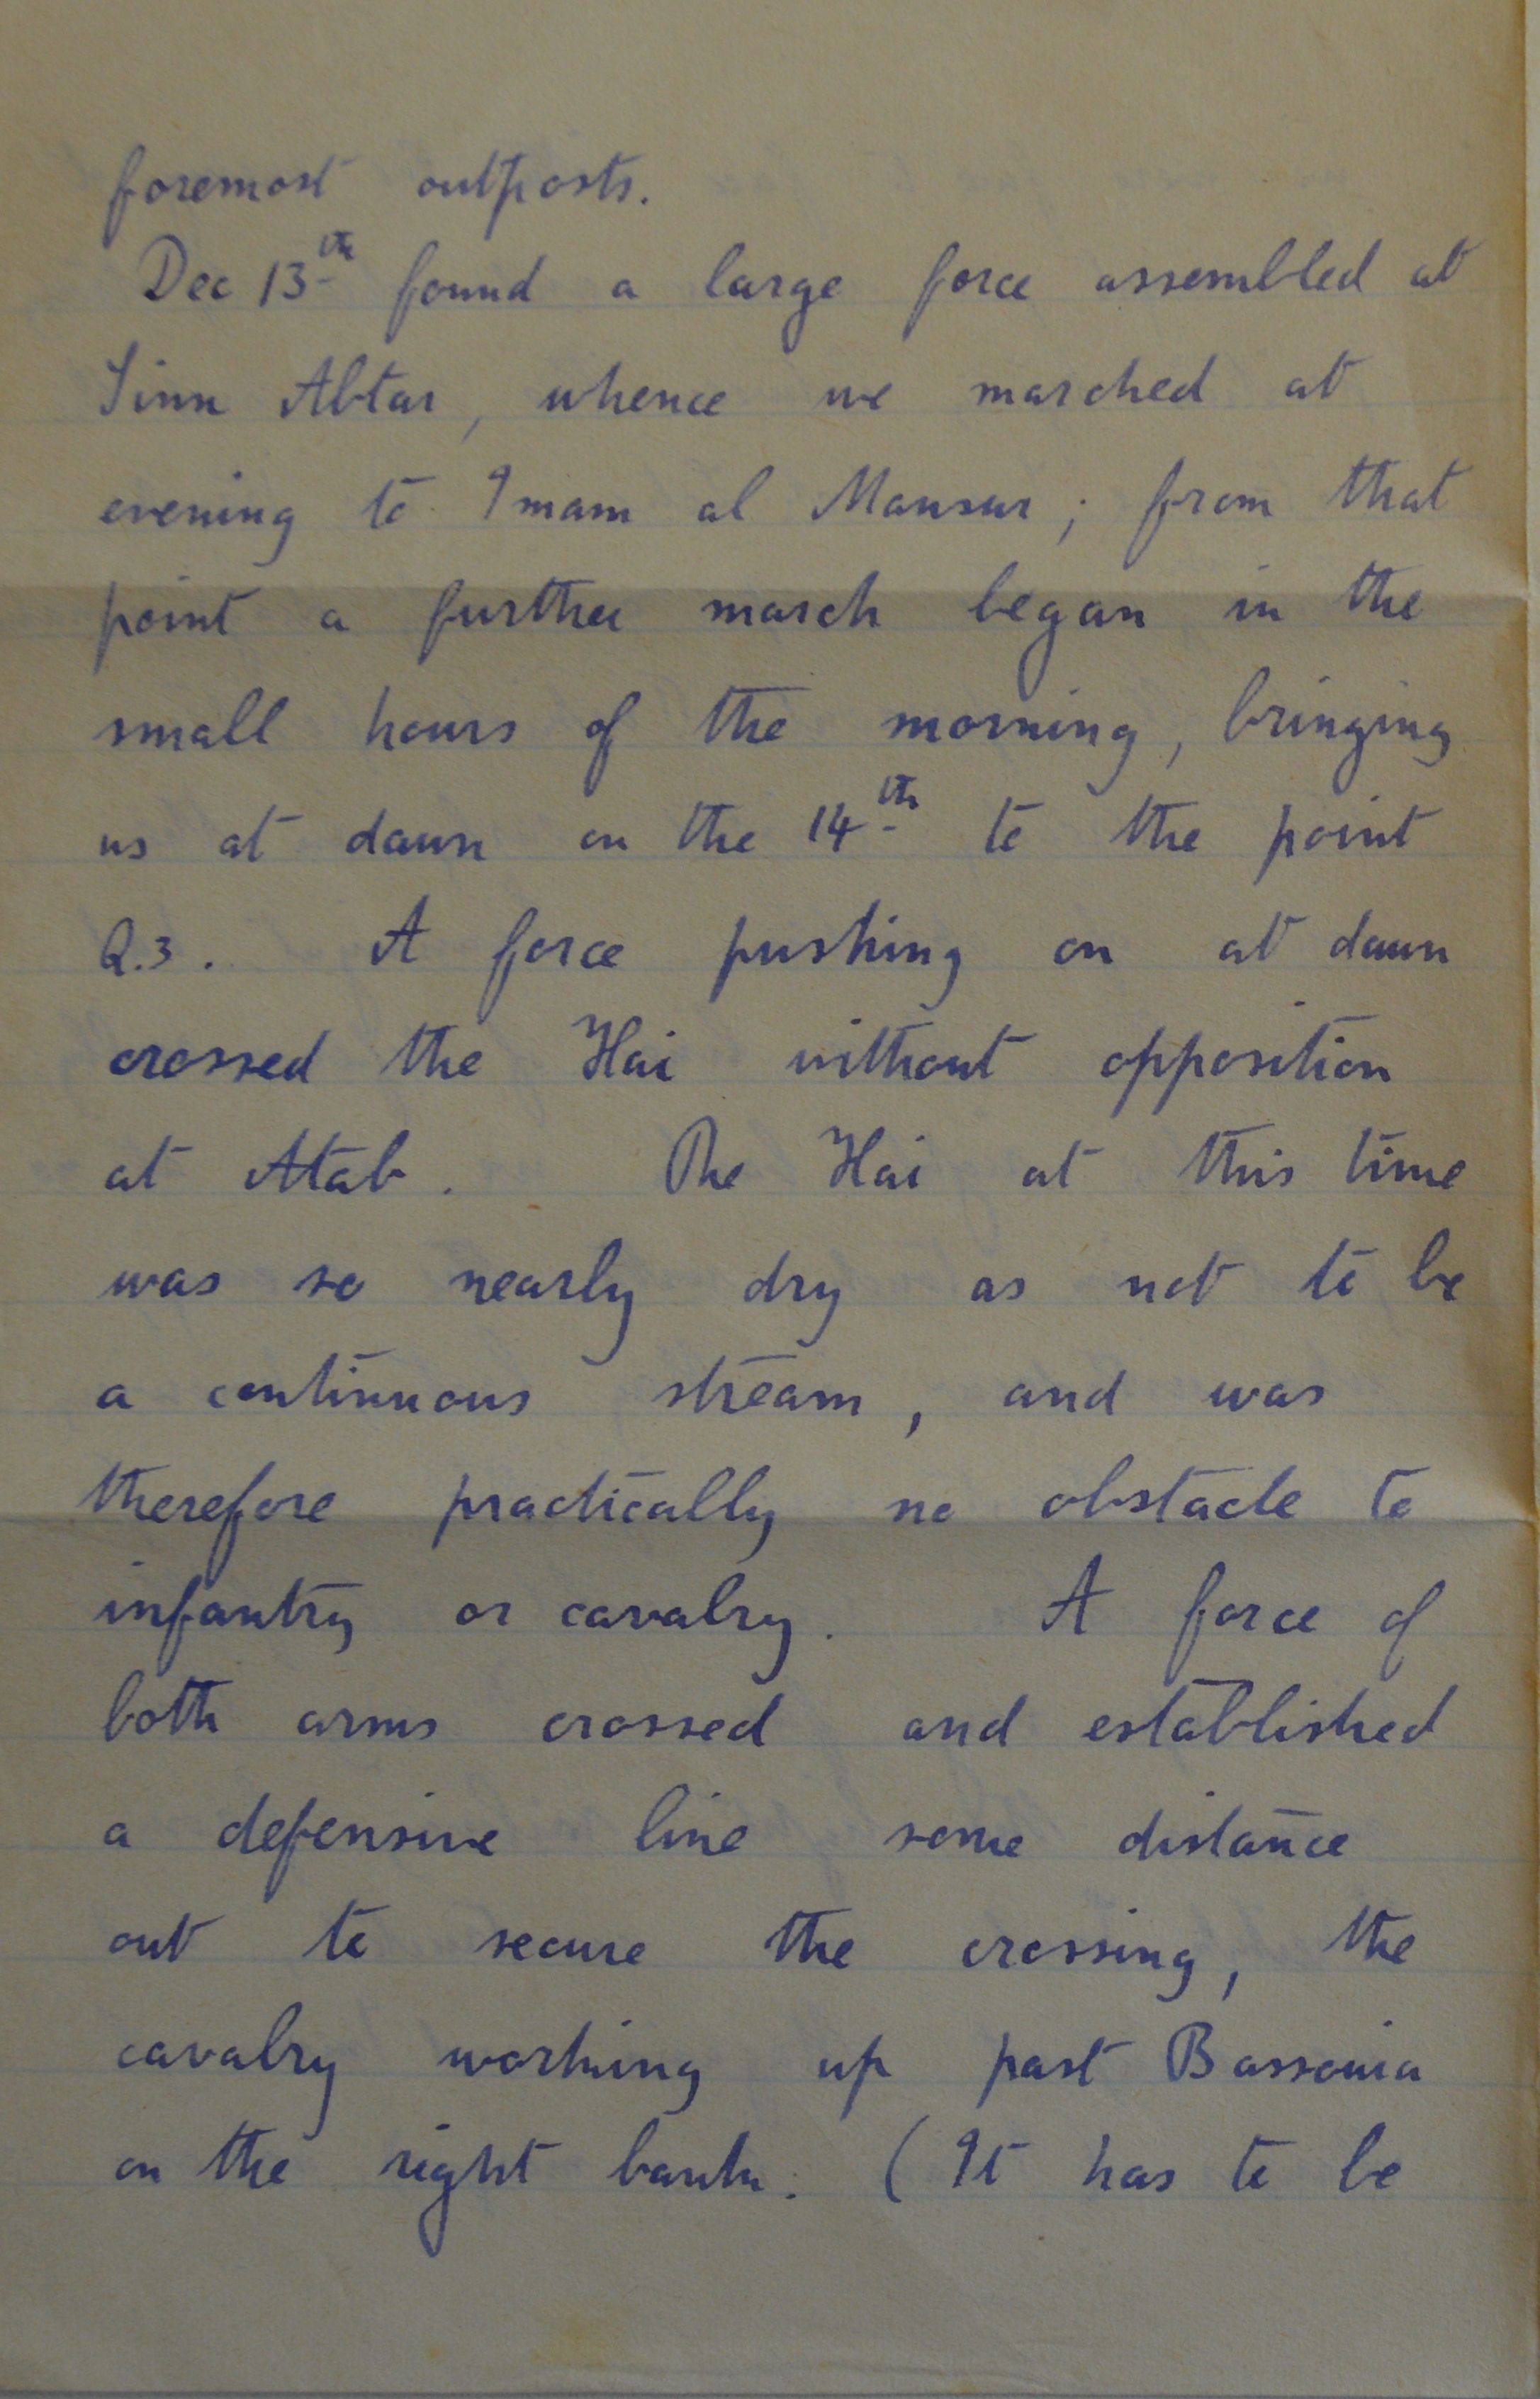 foremost outposts.
Dec 13th found a large force assembled at
Sinn Abtar, whence we marched at
evening to Imam al Mansur; from that
point a further march began in the
small hours of the morning, bringing
us at dawn on the 14th to the point
Q.3. A force pushing on at dawn
crossed the Hai without opposition
at Atab. The Hai at this time
was so nearly dry as not to be
a continuous stream, and was
therefore practically no obstacle to
infantry or cavalry. A force of
both arms crossed and established
a defensive line some distance
out to secure the crossing, the
cavalry working up past Bassouia
on the right bank. (It has to be